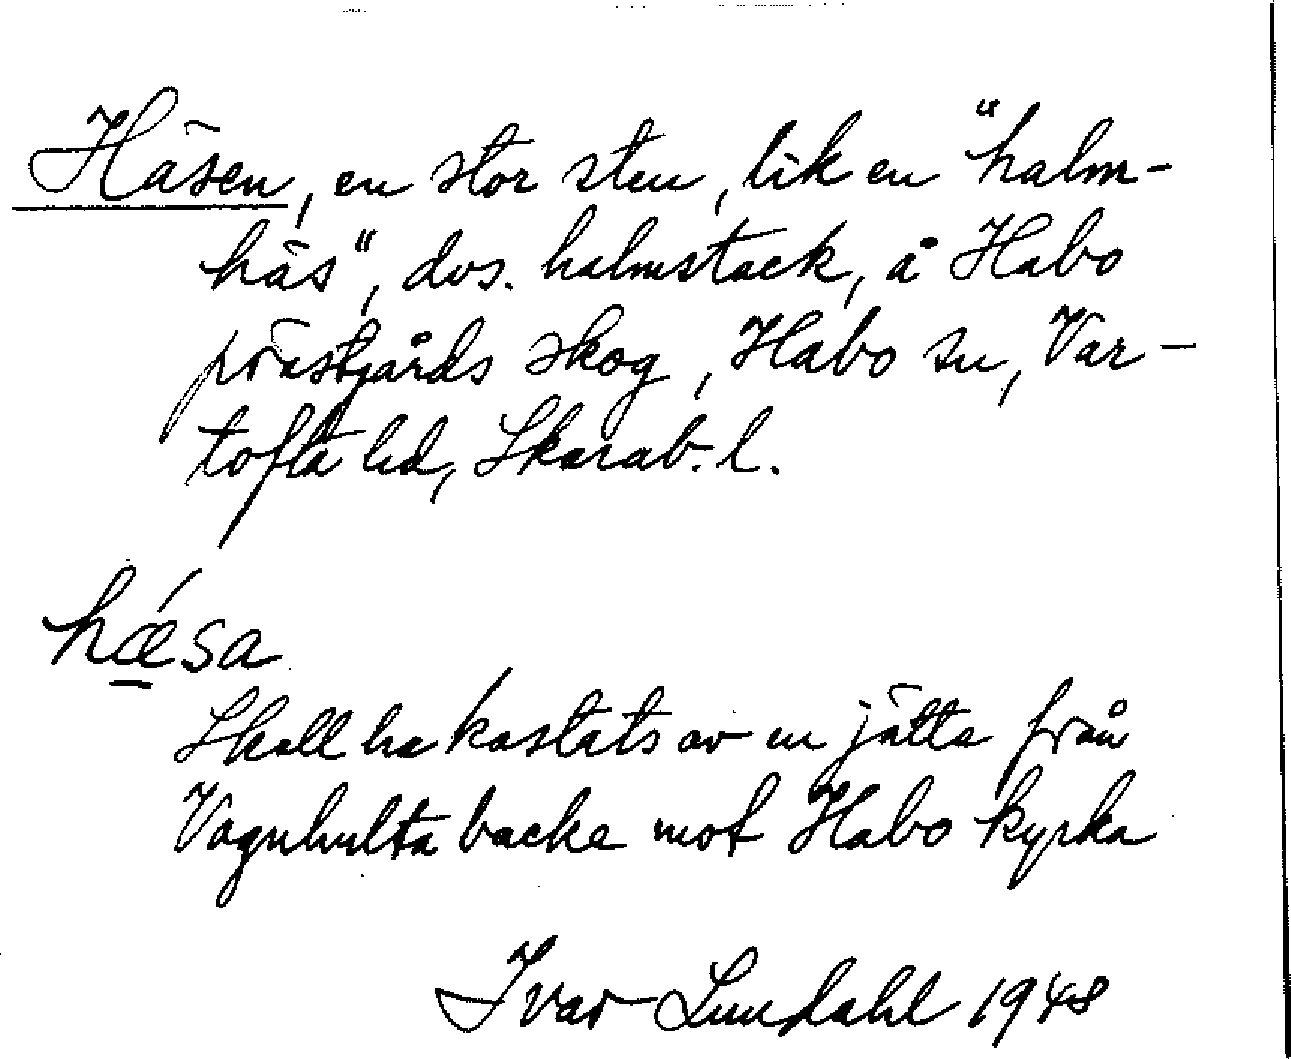 Häsen, en stor sten, lik en "halm-
häs", dvs. halmstack, å Habo
prästgårds skog, Habo sn, Var-
tofta hd, Skarab. l.
hǽsa
Skall ha kastats av en jätte från
Vagnhulta backe mot Habo kyrka
Ivar Lundahl 1948